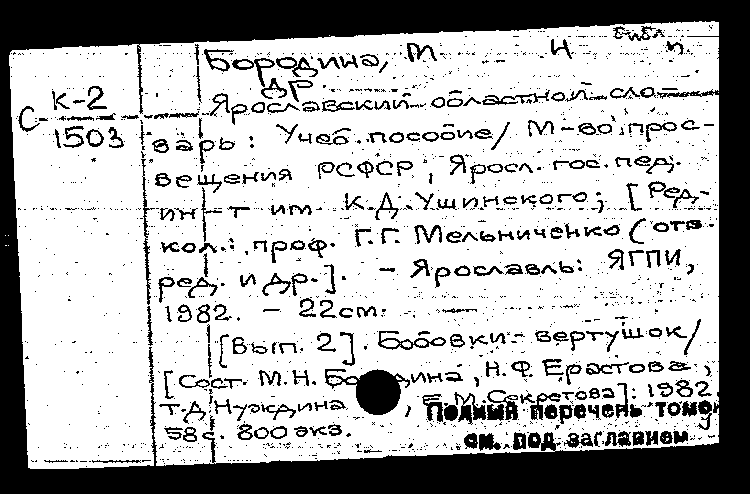 Бородина, М Н библ п.
др.
С К-2
1503
Ярославский областной сло-
варь: Учеб. пособие / М-во прос-
вещения РСФСР, Яросл. гос. пед.
ин-т им. К.Д. Ушинского; [Ред.
кол.: проф. Г.Г. Мельниченко (отв.
ред. и др.]. - Ярославль: ЯГПИ,
1982. - 22см.
[Вып. 2]. Бобовки - вертушок /
[Сост. М.Н. Бородина, Н.Ф. Ерастова,
Т.Д. Нуждина, Е.М. Секретова]: 1982.
58с. 800 экз.
Полный перечень томов
см. под заглавием